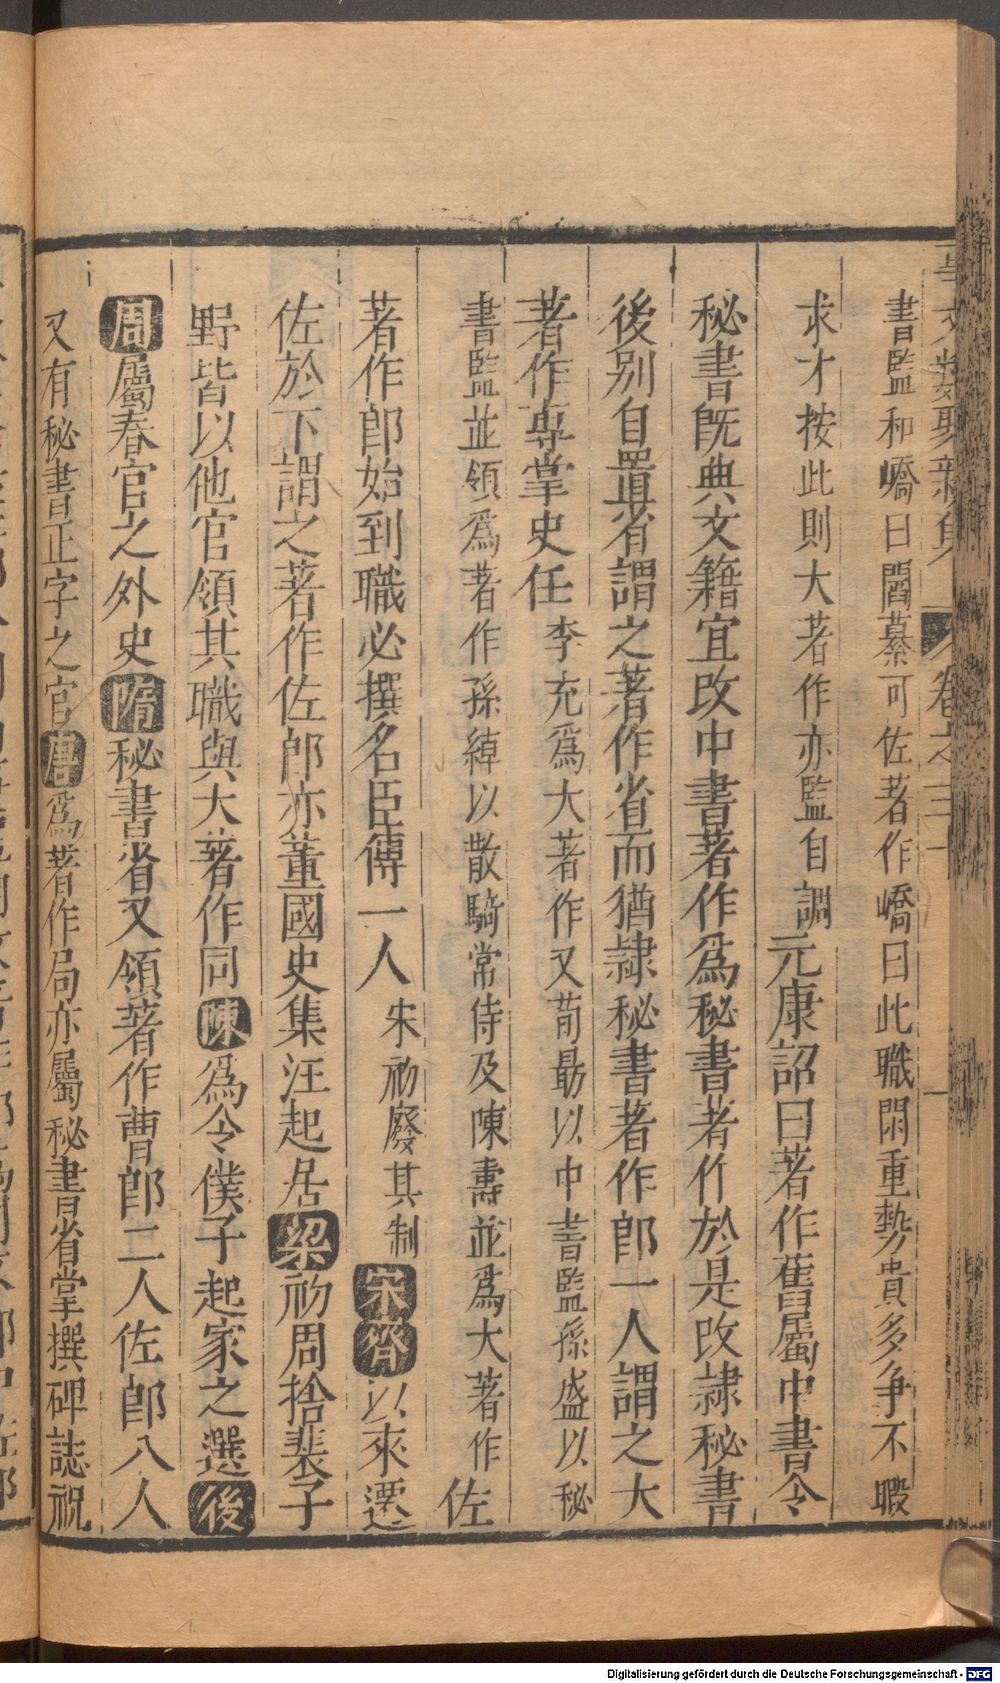 書監和嶠曰閻纂可佐著作嶠曰此職閑重勢貴多争不暇
求才按此則大著作亦監自調元康詔曰著作舊屬中書令
秘書旣典文籍宜改中書著作爲秘書著作於是改隸秘書
後别自置省謂之著作省而猶隸秘書著作郎一人謂之大
著作專掌史任李充爲大著作又荀勗以中書監孫盛以秘
書監並領爲著作孫綽以散騎常侍及陳壽並爲大著作佐
著作郎始到職必撰名臣傳一人宋初廢其制宋齊以來遷
佐於下謂之著作佐郎亦董國史集注起居梁初周捨裴子
野皆以他官領其職與大著作同陳爲令僕子起家之選後
周屬春官之外史隋秘書省又領著作曹郎二人佐郎八人
又有秘書正字之官唐爲著作局亦屬秘書省掌撰碑誌祝
Digitalisierung gefördert durch die Deutsche Forschungsgemeinschaft - DFG